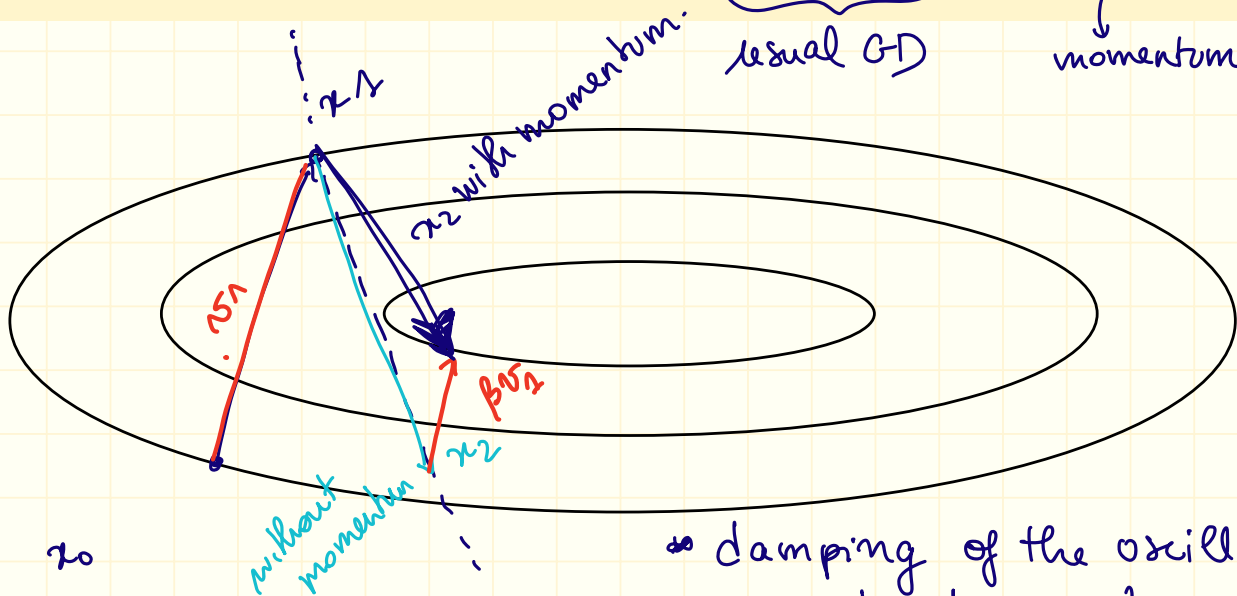 usual GD
momentum
x1
x2 with momentum.
v1
βv1
x2
without
momentum
x0
damping of the oscill